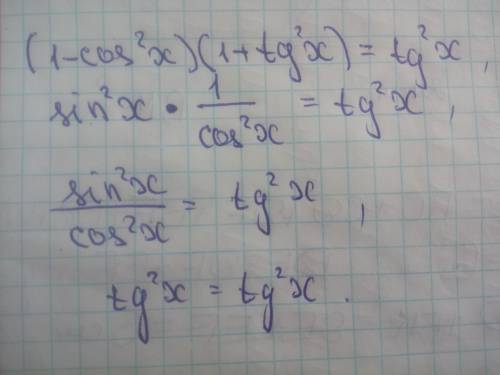 (1-cos²x)(1+tg²x) = tg²x,
sin²x • 1/cos²x = tg²x,
sin²x/cos²x = tg²x,
tg²x = tg²x.